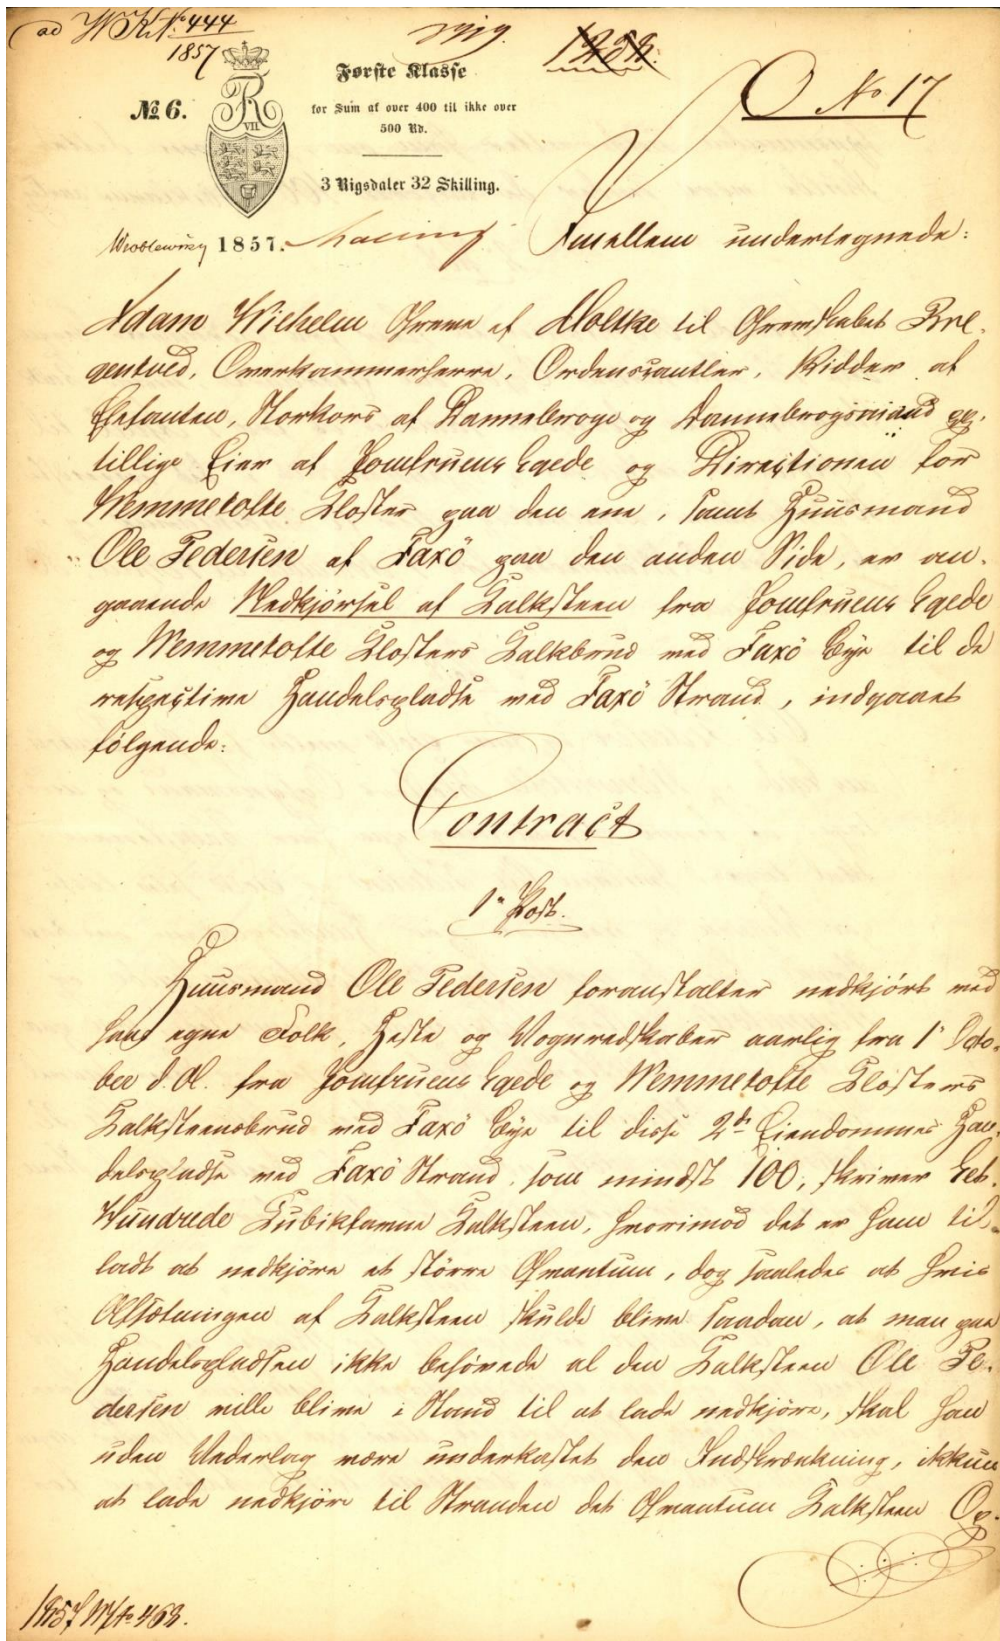 ad W K No 444
1857
1252.
O No 17
No 6.
FR
VII
Første Klasse
for Sum af over 400 til ikke over
500 Rd.
3 Rigsdaler 32 Skilling.
Wroblewsky 1857.
Imellem undertegnede:
Adam Wilhelm Greve af Moltke til Grevskabet Bre-
gentved, Overkammerherre, Ordenscantler, Ridder af
Elefanten, Storkors af Dannebroge og Dannebrogsmand og-
tillige Eier af Jomfruens Egede og Directionen for
Wemmetofte Kloster paa den ene, samt Huusmand
Ole Pedersen af Faxö paa den anden Side, er an-
gaaende Nedkjørsel af Kalksteen fra Jomfruens Egede
og Wemmetofte Klosters Kalkbrud ved Faxö Bye til de
respective Handelspladse ved Faxö Strand, indgaaet
følgende:
Contract
1e Post.
Huusmand Ole Pedersen foranstalter nedkjørt med
hans egne Folk, Heste og Vognredskaber aarlig fra 1e Octo-
ber d. A. fra Jomfruens Egede og Wemmetofte Klosters
Kalksteensbrud ved Faxö Bye til disse 2de Eiendommes Han-
delspladse ved Faxö Strand, som mindst 100, skriver Eet-
Hundrede Kubikfavne Kalksteen, hvorimod det er ham til-
ladt at nedkjøre et større Qvantum, dog saaledes at hvis
Afsætningen af Kalksteen skulde blive saadan, at man paa
Handelspladsen ikke behøvede al den Kalksteen Ole Pe-
dersen ville blive i Stand til at lade nedkjøre, skal han
uden Vederlag være underkastet den Indskrænkning, ikkun
at lade nedkjøre til Stranden det Qvantum Kalksteen Op-
1857 No 468.